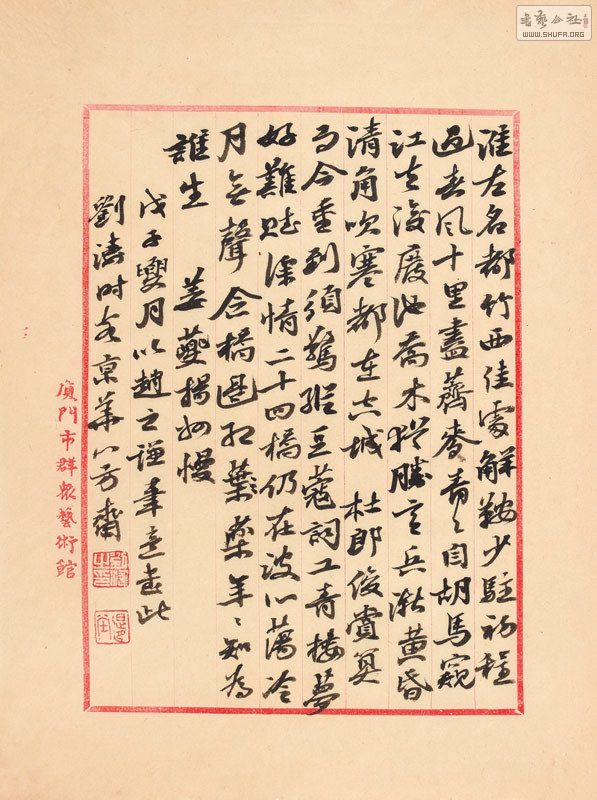 淮左名都竹西佳處解鞍少駐初程
過春風十里盡薺麥青〻自胡馬窺
江去後廢池喬木猶厭言兵漸黄昏
清角吹寒都在空城 杜郎俊賞算
而今重到須驚縱豆蔻詞工青樓夢
好難賦深情二十四橋仍在波心蕩冷
月無聲念橋邊紅藥年〻知為
誰生 姜夔揚州慢
戊子月以趙之謙筆意書此
劉濤時客京華方齋
廈門市群眾藝術館
書藝公社
WWW.SHUFA.ORG